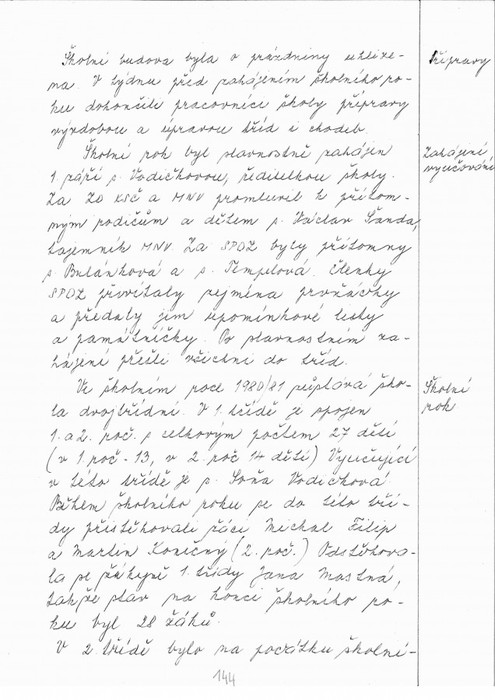 Školní budova byla o prázdniny uklize-
na. V týdnu před zahájením školního ro-
ku dokončily pracovnice školy přípravy
výzdobou a úpravou tříd i chodeb.
Školní rok byl slavnostně zahájen
1. září s. Vodičkovou, ředitelkou školy.
Za ZO KSČ a MNV promluvil k přítom-
ným rodičům a dětem s. Václav Šanda,
tajemník MNV. Za SPOZ byly přítomny
s. Bulánková a s. Tempelová. Členky
SPOZ přivítaly zejména prvňáčky
a předaly jim upomínkové listy
a památníčky. Po slavnostním za-
hájení přešli všichni do tříd.
Ve školním roce 1980/81 zůstává ško-
la dvojtřídní. V 1. třídě je spojen
1. a 2. roč. s celkovým počtem 27 dětí
(v 1. roč. - 13, v 2. roč 14 dětí) Vyučující
v této třídě je s. Soňa Vodičková
Během školního roku se do této tří-
dy přistěhovali žáci Michal Filip
a Martin Koničný (2. roč.) Odstěhova-
la se žákyně 1. třídy Jana Mastná,
takže stav na konci školního ro-
ku byl 28 žáků.
V 2 třídě bylo na počátku školní-
Přípravy
Zahájení
vyučování
Školní
rok
144